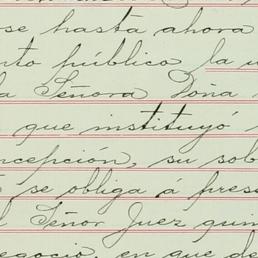 se hasta ahora
nto público la u
la Señora Doña
que instituyó
ncepción, su sob
se obliga á prese
l Señor Juez qum
egocio, en que de